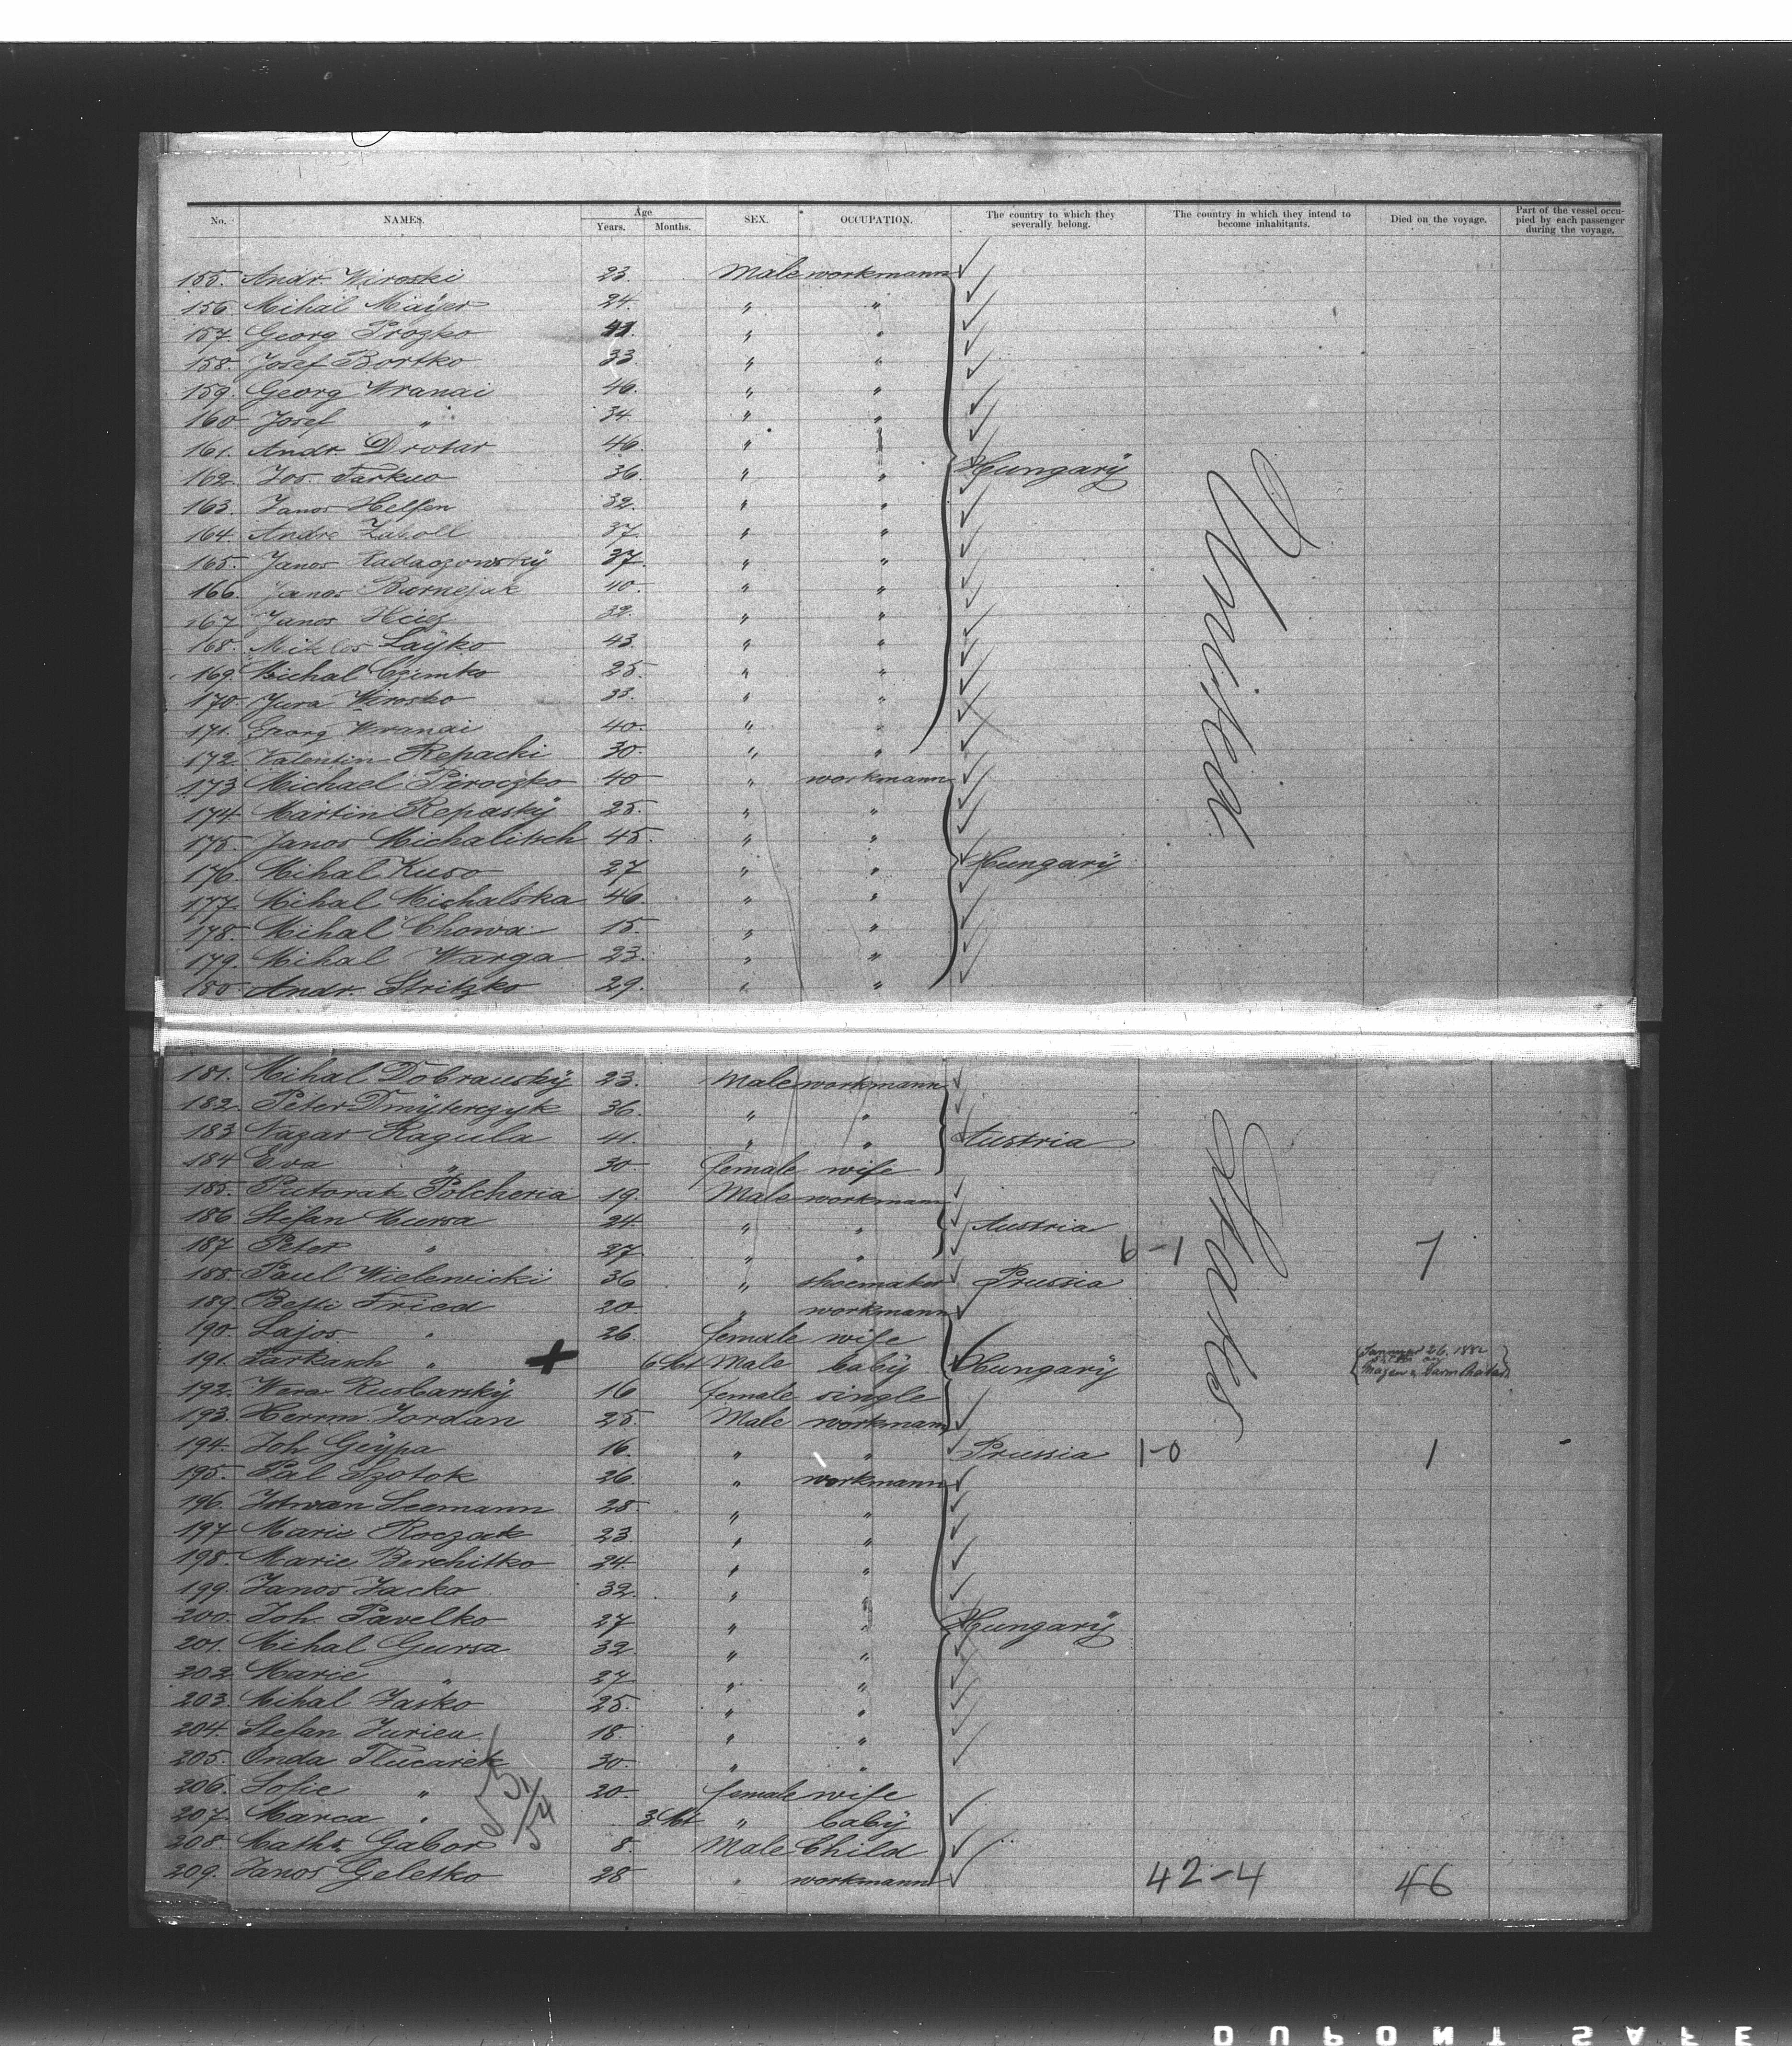 No. NAMES. Age Years. Months. SEX. OCCUPATION. The country to which they severally belong. The country in which they intend to become inhabitants. Died on the voyage. Part of the vessel occupied by each passenger during the voyage.
155. Andr. Wiroski 23. Male workmann
156. Mihal Mayer 24. " "
157. Georg Prozko 41. " "
158. Josef Bortko 33. " "
159. Georg Wranai 46. " "
160. Josef " 34. " "
161. Andr. Drotar 46. "
162. Jos. 36. " " Hungary
163. Janos Helfen 32. " "
164. Andre Zaboll 37. " "
165. Janos Radaczowsky 37. " "
166. Janos Bornejak 40. " "
167. Janos 32. " "
168. Miklos Layko 43. " "
169. Michal Czimko 25. " "
170. Jura Wirosko 33. " "
171. Georg Wranai 40. " "
172. Valentin Repacki 30. " "
173 Michael Piroczko 40 " workmann
174. Martin Repasky 25. " "
175. Janos Michalitsch 45. " "
176. Mihal Kuso 27 " " Hungary
177. Mihal Michalska 46. " "
178. Mihal Chowa 15. " "
179. Mihal Warga 23. " "
180. Andr. Stritzko 29. " "
United
181. Mihal Dobrausky 23. Male workmann
182. Peter Dmyterczyk 36. " "
183 Nazar Ragula 41. " " Austria
184 Eva " 30. female wife
185. Putorak Polcheria 19. Male workmann
186. Stefan Mursa 24. " " Austria
187. Peter " 27. " " 6-1 7
188. Paul Wielewicki 36 " shoemaker Prussia
189. Betti Fried 20. " workmann
190. Lajos " 26. female wife
191. Larkasch " 6 Mt Male baby Hungary Januar 26. 1882
192. Wera Rusbarsky 16 female single
193. Herrm. Jordan 25. Male workmann
194. Joh. Geypa 16. " " Prussia 1-0 1
195. Pal Szotok 26. " workmann
196. Istwan Leemann 28. " "
197. Marie Roczak 23 " "
198. Marie Berchitko 24. " "
199. Janos Jacko 32. " "
200. Joh. Pavelko 27 " " Hungary
201. Mihal Gursa 32. " "
202 Marie " 27. " "
203. Mihal Jasko 25. " "
204. Stefan Juriea 18. " "
205. Onda Tlucarek 30. " "
206. Sofie " 20. female wife
207. Marca " 3 Mt " baby
208. Gabor 8. Male Child
209. Janos Geletko 28 " workmann 42-4 46
States
DUPONT SAFE